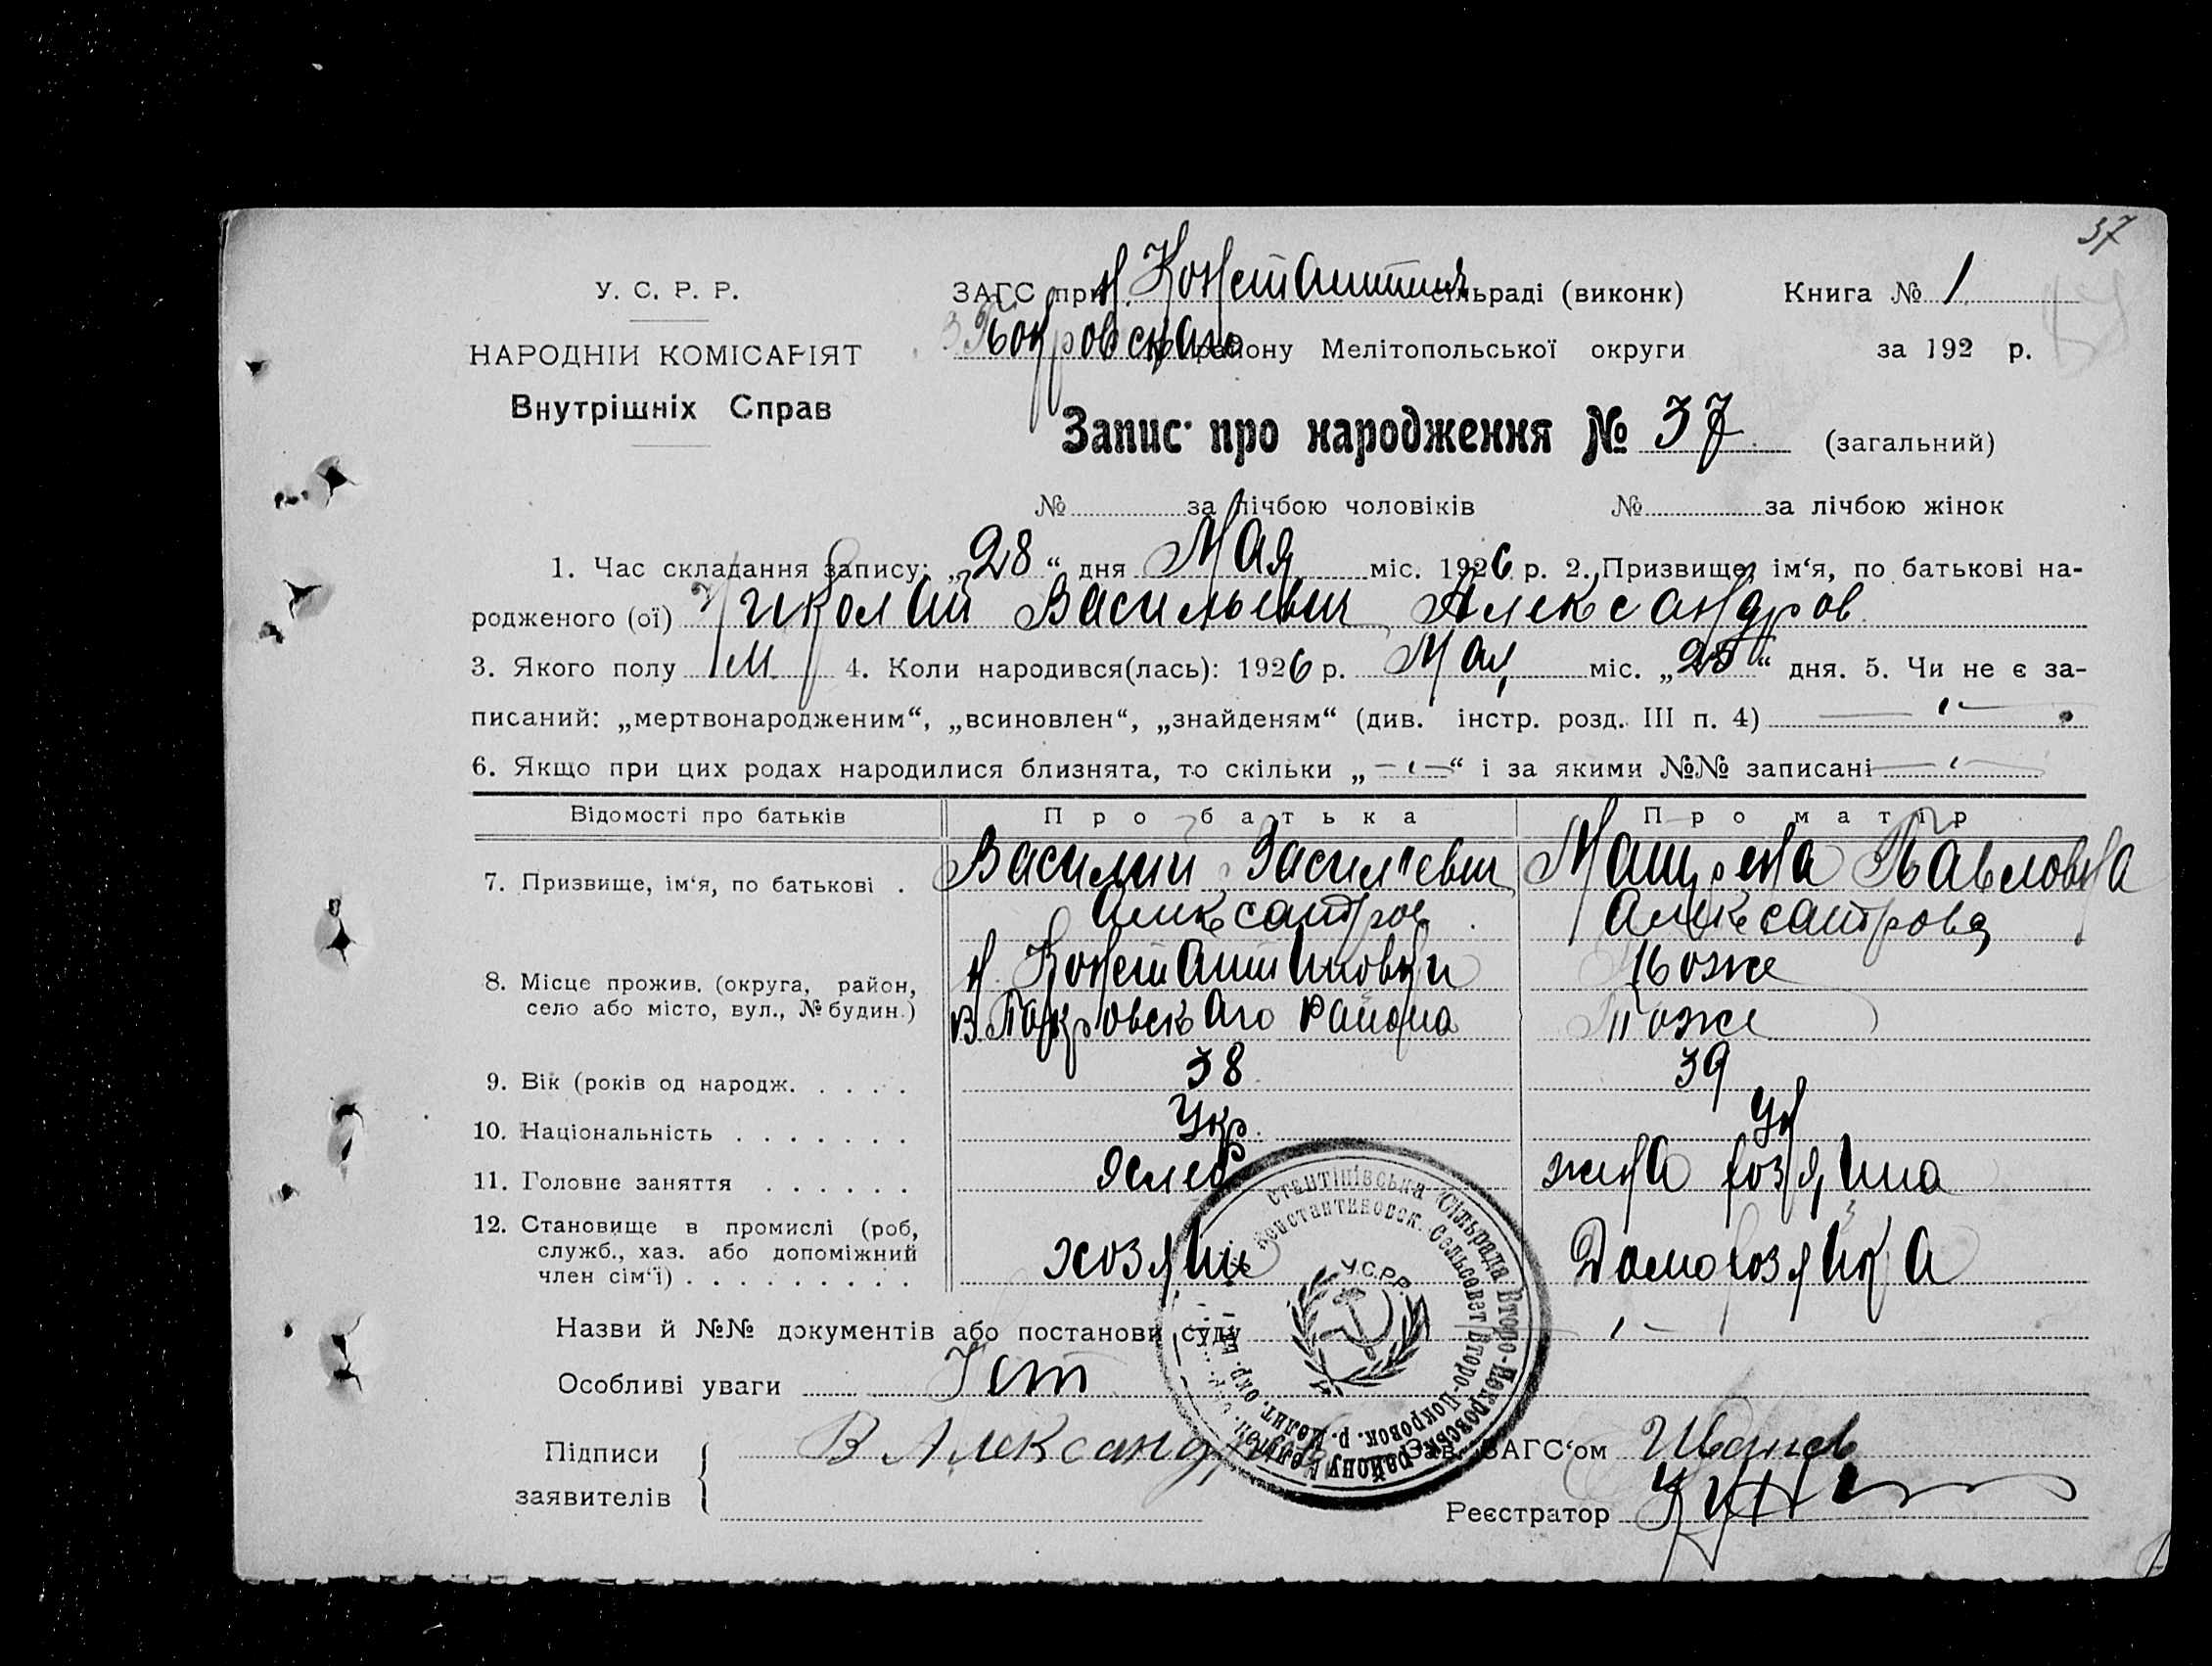 37
У. С. Р. Р.
НАРОДНІЙ КОМІСАРІЯТ
Внутрішніх Справ
ЗАГС при Н. Константин сільраді (виконк) Книга № 1
Покровскаго району Мелітопольської округи за 192 р.
Запис про народження № 37 (загальний)
№ за лічбою чоловіків № за лічбою жінок
1. Час складання запису: „28“ дня Мая міс. 1926 р. 2. Призвище, ім‘я, по батькові на-
родженого (ої) Николай Васильевич Александров
3. Якого полу М. 4. Коли народився(лась): 1926 р. Мая міс. „ “ дня. 5. Чи не є за-
писаний: „мертвонародженим“, „всиновлен“, „знайденям“ (див. інстр. розд. III п. 4)
6. Якщо при цих родах народилися близнята, то скільки „ “ і за якими №№ записані
Відомості про батьків Про батька Про матір
7. Призвище, ім‘я, по батькові . Василий Васил"евич Павловна
Александров Александрова
8. Місце прожив. (округа, район, Н. Константиновки тоже
село або місто, вул., № будин.) В. Покровскаго Района Тоже
9. Вік (років од народж. . . . . 38 39
10. Національність . . . . . . . Укр. Ук
11. Головне заняття . . . . . . жена хозяина
12. Становище в промислі (роб, хозяин Домохозяйка
служб., хаз. або допоміжний
член сім‘ї) . . . . . . . . .
Назви й №№ документів або постанови суду
Особливі уваги Нет
Підписи
заявителів
В Александров
Зав. ЗАГС‘ом Иванов
Реєстратор
стянтінівська Сільрада Второ-Покровськ. району
Константиновск. Сельсовет Второ-Покровск. р. Мелит. окр.
У.С.Р.Р.